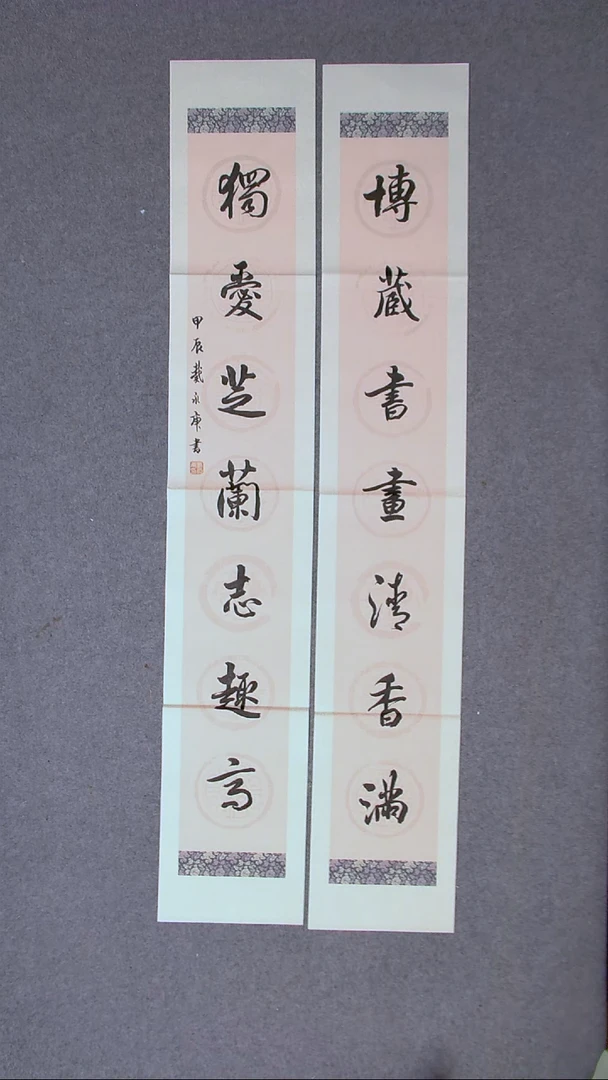 博藏書畫清香滿
獨愛芝蘭志趣高
甲辰戴永康書